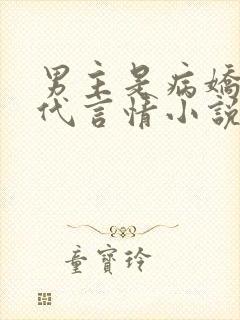 男主是病嬌
代言情小說
童寶玲